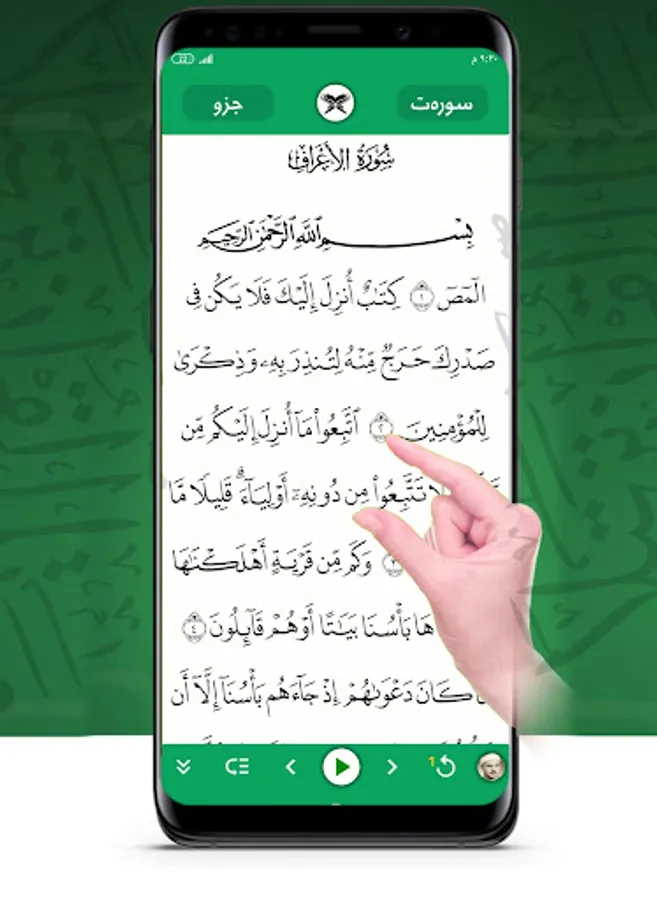 ٩:٣٠ م
سورەت جزو
سُورَةُ الأَعْرَافِ
بِسْمِ ٱللَّهِ ٱلرَّحْمَٰنِ ٱلرَّحِيمِ
الٓمٓصٓ ١ كِتَٰبٌ أُنزِلَ إِلَيْكَ فَلَا يَكُن فِى
صَدْرِكَ حَرَجٌ مِّنْهُ لِتُنذِرَ بِهِۦ وَذِكْرَىٰ
لِلْمُؤْمِنِينَ ٢ ٱتَّبِعُوا۟ مَآ أُنزِلَ إِلَيْكُم مِّن
لَا تَتَّبِعُوا۟ مِن دُونِهِۦٓ أَوْلِيَآءَ ۗ قَلِيلًا مَّا
٣ وَكَم مِّن قَرْيَةٍ أَهْلَكْنَٰهَا
هَا بَأْسُنَا بَيَٰتًا أَوْ هُمْ قَآئِلُونَ ٤
كَانَ دَعْوَىٰهُمْ إِذْ جَآءَهُم بَأْسُنَآ إِلَّآ أَن
1